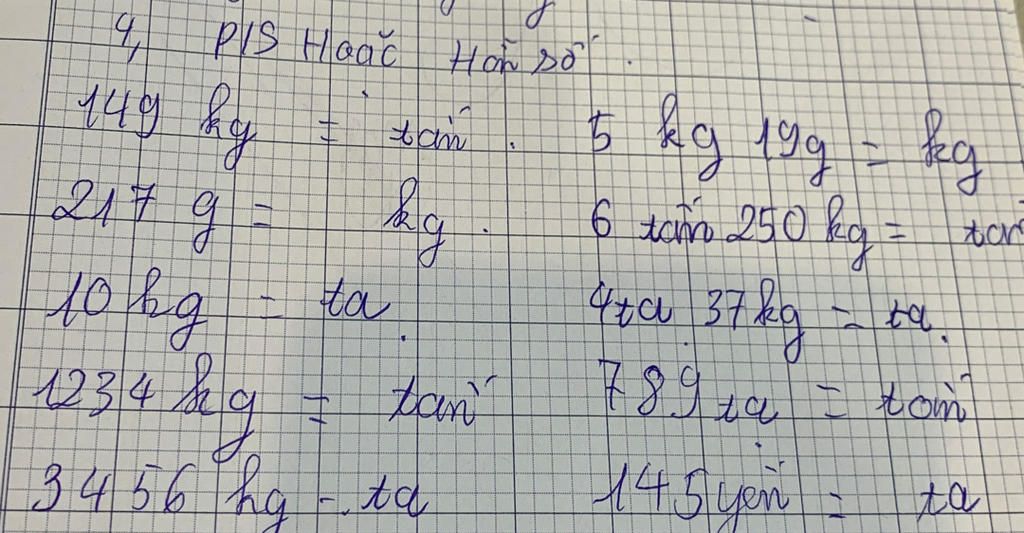 4, P/S Hoặc Hỗn số.
149 kg = tấn. 5 kg 19g = kg
217 g = kg. 6 tấn 250 kg = tấn
10 kg = tạ 4 tạ 37 kg = tạ.
1234 kg = tấn 789 tạ = tấn
3456 kg = tạ 145 yến = tạ